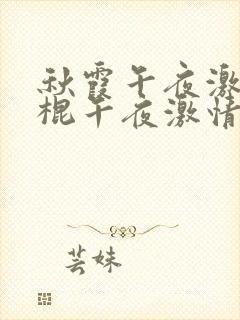 秋霞午夜激
棍午夜激情
芸妹